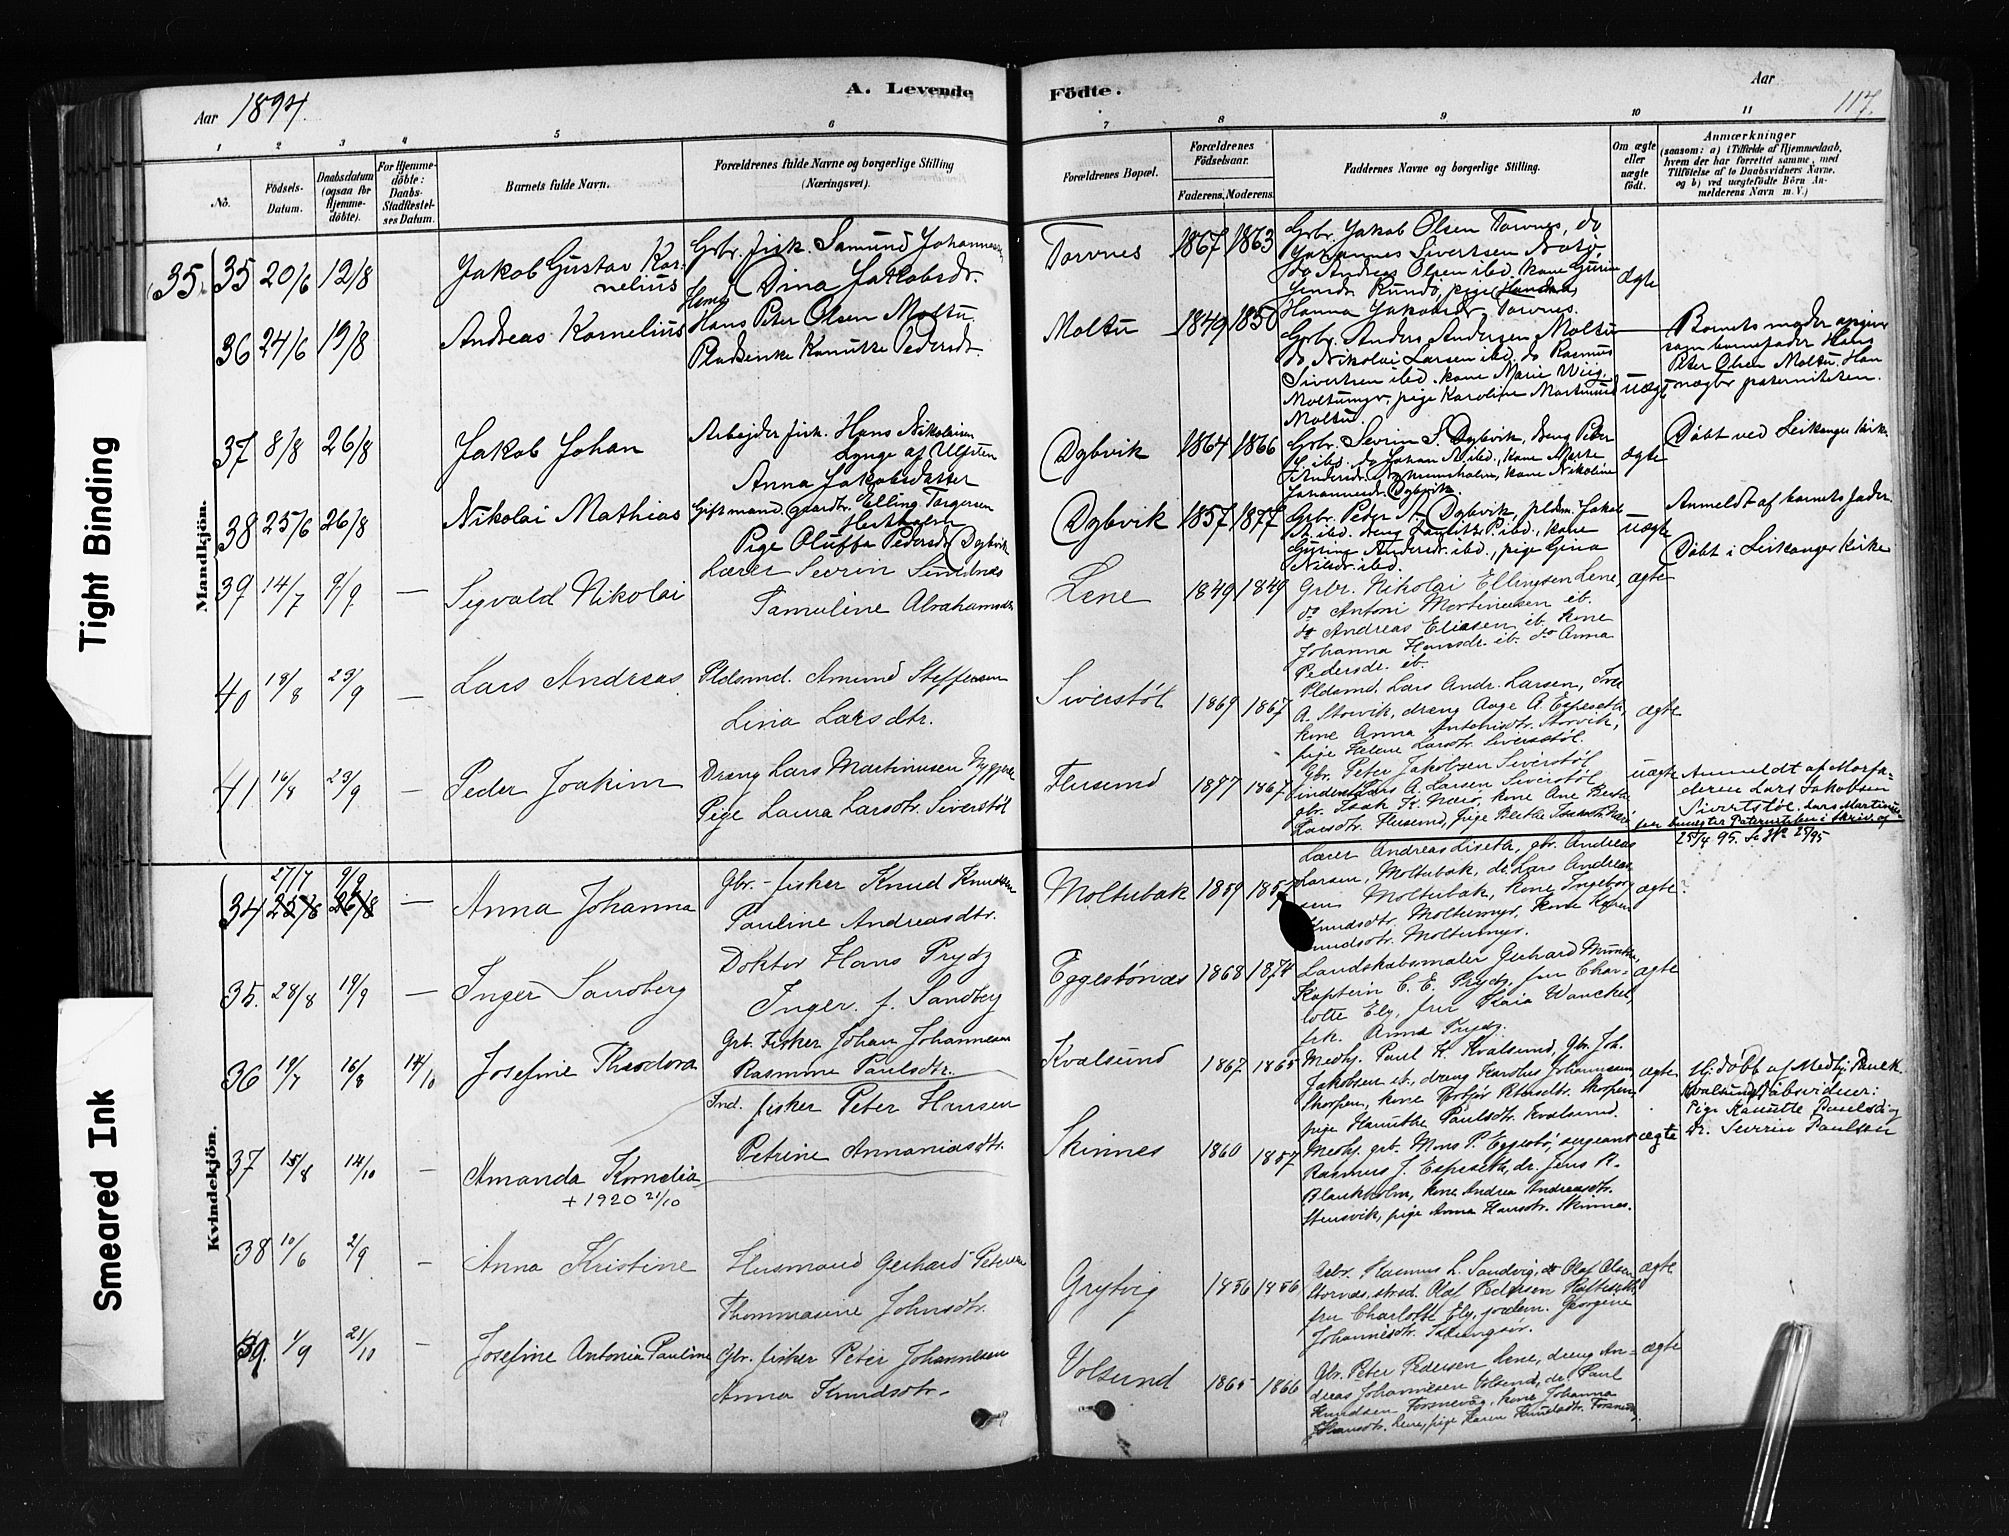 Aar 1894.
A. Levende
Födte.
Aar
117.
1 2 3 4 5 6 7 8 9 10 11
No.
Födsels-
Datum.
Daabsdatum
(ogsaa for
Hjemme-
döbte).
For Hjemme-
döbte:
Daabs-
Stadfæstel-
ses Datum.
Barnets fulde Navn.
Forældrenes fulde Navne og borgerlige Stilling
(Næringsvei).
Forældrenes Bopæl.
Forældrenes
Födselsaar.
Faderens. Moderens.
Faddernes Navne og borgerlige Stilling.
Om ægte
eller
uægte
födt.
Anmærkninger
(saasom: a) i Tilfælde af Hjemmedaab,
hvem der har forrettet samme, med
Tilföielse af to Daabsvidners Navne,
og b) ved uægtefödte Börn An-
melderens Navn m. V.)
Tight Binding
Smeared Ink
Mandkjön.
(35) 35 20/6 12/8
Jakob Gustav Kor-
nelius
Gbr. fisk. Samund Johannesen
Dina Jakobsdr.
Torvnes
1867 1863
Gbr. Jakob Olsen Torvnes, do
Johannes Sivertsen
do Andreas Olsen ibd. kone
Jensdr. Rundö, pige
Hanna Jakobsdr. Torvnes.
Ægte
36 24/6 19/8
Andreas Kornelius
Hans Peter Olsen Moltu
Pladsenke Kanutte Pedersdr.
Moltu
1849 1850
Gbr. Anders Andersen Moltu
do Nikolai Larsen ibd. do Rasmus
Sivertsen ibd. kone Marie Wiig,
Moltumyr, pige Karoline
Moltu.
uægte
Barnets moder angiver
som barnefader Hans
Peter Olsen Moltu. Han
nægter paterniteten.
37 8/8 26/8
Jakob Johan
Arbejder fisk. Hans Nikolaisen
Lynge af Ulfsten
Anna Jakobsdatter
Dybvik
1864 1866
Gbr. Severin S. Dybvik, dreng Peter
S. ibd. do Johan A. ibd., kone Marte
Andersdr. kone Nikoline
Johannesdr. Dybvik.
ægte
Döbt ved Leikanger kirke
38 25/6 26/8
Nikolai Mathias
Gift mand gaardbr. Elling Torgersen
Pige Oluffa Pedersdr. Dybvik
Dybvik
1857 1877
Gbr. Peder A. Dybvik, pldm. Jakob
P. ibd. dreng P. ibd., kone
Gurine Andersdr. ibd., pige Gina
Nilsdr. ibd.
uægte
Anmeldt af barnets fader.
Döbt i Leikanger kirke
39 14/7 9/9 —
Sigvald Nikolai
Lærer Sevrin Sundnæs
Tamuline Abrahamsdtr
Lene
1849 1849
Gbr. Nikolai Ellingsen Lene,
do Antoni Martinusen ib.
do Andreas Eliasen ib. kone
Johanna Hansdr. ib. do Anna
Pedersdr. ib.
ægte
40 18/8 23/9 —
Lars Andreas
Pldsmd. Amund Steffensen
Lina Larsdtr.
Siverstöl
1869 1867
Pldsmd. Lars Andr. Larsen,
A. Storvik, dreng Aage A. Espeseth,
kone Anna Antonsdtr. Storvik,
pige Helene Larsdtr. Siverstöl.
ægte
41 16/8 23/9 —
Peder Joakim
Dreng Lars Martinusen
Pige Laura Larsdtr. Siverstöl
Flusund
1877 1867
Gbr. Peter Jakobsen Siverstöl
Lars A. Larsen Siverstöl
gbr. Isak K. kone Ane
Larsdtr. Flusund, pige Berthe
uægte
Anmeldt af Morfa-
deren Lars Jakobsen
Siverstöl. Lars Martinus-
benægter Paterniteten i Skriv. af
25/4 95.
Kvindekjön.
34 27/7 25/8 9/9 26/8 —
Anna Johanna
Gbr.-fisker Knud Knudsen
Pauline Andreasdtr.
Moltubak
1859 1857
Lærer Andreas Liseth, gbr. Andreas
Larsen, Moltubak, do Lars Andrea-
sen Moltubak, kone Ingeborg
Knudsdtr. Moltumyr, kone Karen
Knudsdtr. Moltumyr.
ægte
35. 28/8 19/9 —
Inger Sandberg
Doktor Hans Prydz
Inger f. Sandberg
Eggesbönæs
1868 1874
Landskabsmaler Gerhard Munthe,
Kaptein C. E. Prydz, fru Char-
lotte Ely, fru Kaia Wanckel,
frk. Anna Prydz.
ægte
36 19/7 16/8 14/10
Josefine Theodora
Gbr. Fisker Johan Johannesen
Rasmine Paulsdtr.
Kvalsund
1867 1865
Medhj. Paul K. Kvalsund, Gbr. Joh.
Jakobsen ib., dreng Karolus Johannesen
Skorpen, kone Skorpen,
pige Hanutte Paulsdtr. Kvalsund.
ægte
Hj. döbt af Medhj. Paul K.
Kvalsund. Daabsvidner:
Pige Kanutte Paulsd. og
Dr. Severin Paulsen
37 15/8 14/10 —
Amanda Kornelia
+ 1920 21/10
Ind. fisker Peter Hansen
Petrine Annaniasdtr.
Skinnes
1860 1857
Medhj. gbr. Mons P. Eggesbö, sergeant
Rasmus J. Espeseth, dr. Jens R.
Blankholm, kone Andrea Andreasdtr.
Stensvik, pige Anna Hansdtr. Skinnes.
ægte
38 10/6 2/9 —
Anna Kristine
Husmand Gerhard Petersen
Thommasine Johnsdtr.
Grytvig
1856 1856
Gbr. Rasmus L. Sandvig, do Olaf Olsen
Olaf Pedersen
fru Charlotte Ely, jordem. Georgine
Johannesdtr.
ægte
39. 1/9 21/10 —
Josefine Antonia Pauline
Gbr. fisker Peter Johannesen
Anna Knudsdtr.
Volsund
1865 1866
Gbr. Peter Pedersen Lene, dreng An-
dreas Johannesen Volsund, dr. Paul
Knudsen Fosnevåg, kone Johanna
Hansdtr. Lene, pige Karen Knudsdtr. Fosnevåg.
ægte